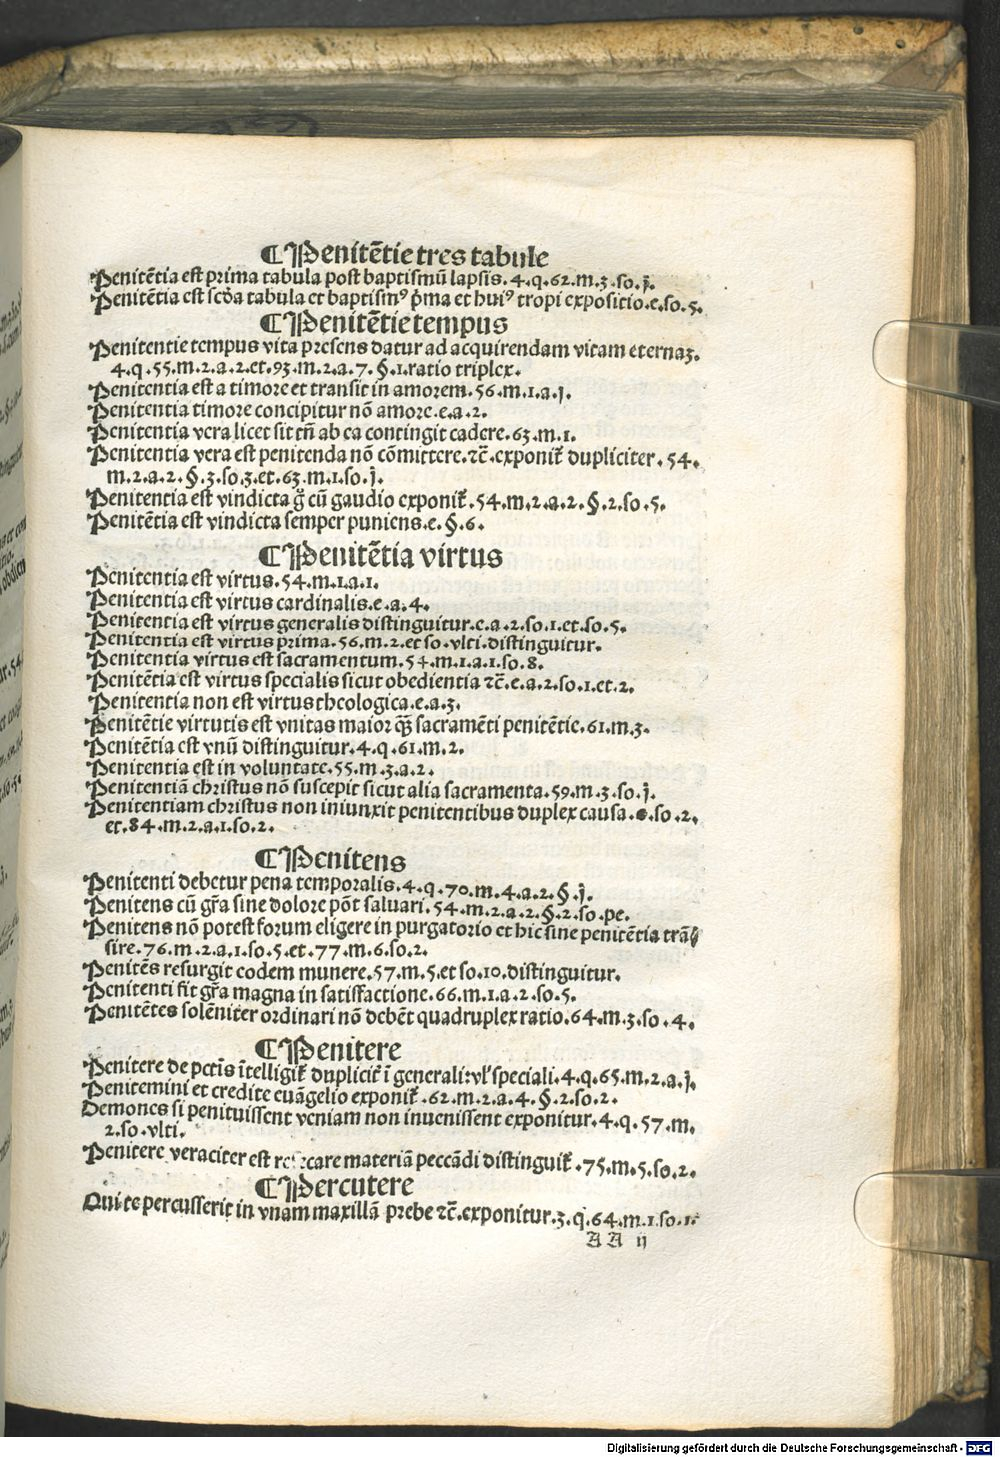 ¶ Penitētie tres tabule
Penitētia est prima tabula post baptismū lapsis. 4. q. 62. m. 3. so. j.
Penitētia est scd̄a tabula et baptismꝰ p̄ma et huiꝰ tropi expositio. e. so. 5.
¶ Penitētie tempus
Penitentie tempus vita presens datur ad acquirendam vitam eternaꝫ.
4. q. 55. m. 2. a. 2. et. 93. m. 2. a. 7. §. 1. ratio triplex.
Penitentia est a timore et transit in amorem. 56. m. 1. a. j.
Penitentia timore concipitur nō amore. e. a. 2.
Penitentia vera licet sit tn̄ ab ea contingit cadere. 63. m. 1.
Penitentia vera est penitenda nō cōmittere. ⁊c̄. exponit̄ dupliciter. 54.
m. 2. a. 2. §. 3. so. 3. et. 63. m. 1. so. j.
Penitentia est vindicta g̊ cū gaudio exponit̄. 54. m. 2. a. 2. §. 2. so. 5.
Penitētia est vindicta semper puniens. e. §. 6.
¶ Penitētia virtus
Penitentia est virtus. 54. m. 1. a. 1.
Penitentia est virtus cardinalis. e. a. 4.
Penitentia est virtus generalis distinguitur. e. a. 2. so. 1. et. so. 5.
Penitentia est virtus prima. 56. m. 2. et so. vlti. distinguitur.
Penitentia virtus est sacramentum. 54. m. 1. a. 1. so. 8.
Penitētia est virtus specialis sicut obedientia ⁊c̄. e. a. 2. so. 1. et. 2.
Penitentia non est virtus theologica. e. a. 3.
Penitētie virtutis est vnitas maior qꝫ sacramēti penitētie. 61. m. 3.
Penitētia est vnū distinguitur. 4. q. 61. m. 2.
Penitentia est in voluntate. 55. m. 3. a. 2.
Penitentiā christus nō suscepit sicut alia sacramenta. 59. m. 3. so. j.
Penitentiam christus non iniunxit penitentibus duplex causa. e. so. 2.
et. 84. m. 2. a. 1. so. 2.
¶ Penitens
Penitenti debetur pena temporalis. 4. q. 70. m. 4. a. 2. §. j.
Penitens cū gr̄a sine dolore pōt saluari. 54. m. 2. a. 2. §. 2. so. pe.
Penitens nō potest forum eligere in purgatorio et hic sine penitētia trāſ
sire. 76. m. 2. a. 1. so. 5. et. 77. m. 6. so. 2.
Penitēs resurgit eodem munere. 57. m. 5. et so. 10. distinguitur.
Penitenti fit gr̄a magna in satisfactione. 66. m. 1. a. 2. so. 5.
Penitētes solēniter ordinari nō debēt quadruplex ratio. 64. m. 3. so. 4.
¶ Penitere
Penitere de pctīs ītelligit̄ duplicit̄ ī generali: vl̓ speciali. 4. q. 65. m. 2. a. j.
Penitemini et credite euāgelio exponit̄. 62. m. 2. a. 4. §. 2. so. 2.
Demones si penituissent veniam non inuenissent exponitur. 4. q. 57. m.
2. so. vlti.
Penitere veraciter est resecare materiā peccādi distinguit̄. 75. m. 5. so. 2.
¶ Percutere
Qui te percusserit in vnam maxillā prebe ⁊c̄. exponitur. 3. q. 64. m. 1. so. 1.
AA ij
Digitalisierung gefördert durch die Deutsche Forschungsgemeinschaft - DFG